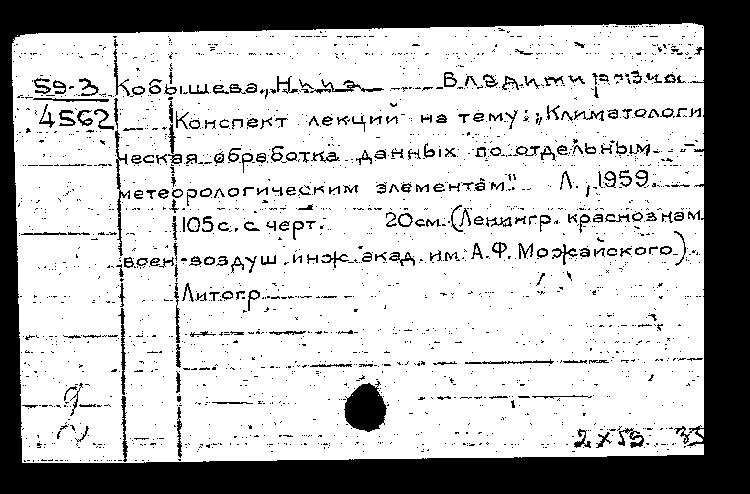 59-3 Кобышева, Нина Владимировна
4562 Конспект лекций на тему: „Климатологи
ческая обработка данных по отдельным
метеорологическим элементам". Л., 1959.
105с. с черт. 20см. (Ленингр. краснознам.
воен-воздуш. инж. акад. им. А.Ф. Можайского)
Литогр.
2
2 X 59